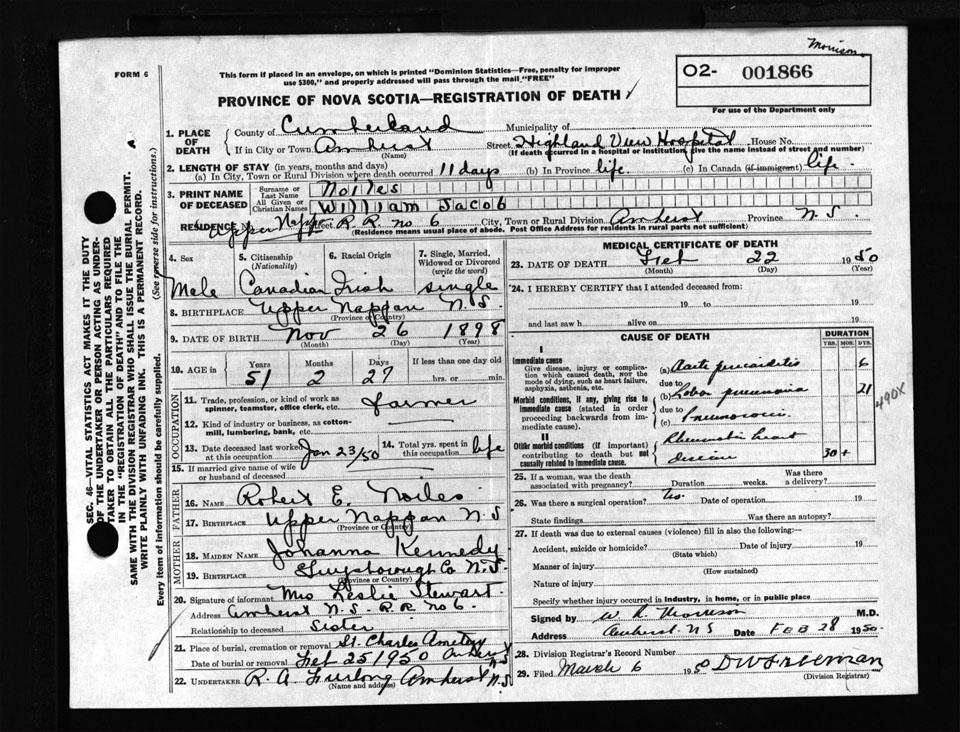 Morrison
FORM 6
This form if placed in an envelope, on which is printed "Dominion Statistics—Free, penalty for improper
use $300," and properly addressed will pass through the mail "FREE"
O2- 001866
For use of the Department only
PROVINCE OF NOVA SCOTIA—REGISTRATION OF DEATH
1. PLACE OF DEATH
County of Cumberland Municipality of
If in City or Town Amherst Street Highland View Hospital House No.
(Name) (If death occurred in a hospital or institution, give the name instead of street and number)
2. LENGTH OF STAY (in years, months and days)
(a) In City, Town or Rural Division where death occurred 11 days (b) In Province life. (c) In Canada (if immigrant) life.
3. PRINT NAME OF DECEASED
Surname or Last Name Noiles
All Given or Christian Names William Jacob
RESIDENCE Upper Nappan Street R.R. no 6 City, Town or Rural Division Amherst Province N.S.
(Residence means usual place of abode. Post Office Address for residents in rural parts not sufficient)
4. Sex Male
5. Citizenship (Nationality) Canadian
6. Racial Origin Irish
7. Single, Married, Widowed or Divorced (write the word) single
8. BIRTHPLACE Upper Nappan N.S.
(Province or Country)
9. DATE OF BIRTH Nov 26 1898
(Month) (Day) (Year)
10. AGE in Years 51 Months 2 Days 27 If less than one day old
hrs. or min.
OCCUPATION
11. Trade, profession, or kind of work as
spinner, teamster, office clerk, etc. farmer
12. Kind of industry or business, as cotton-
mill, lumbering, bank, etc.
13. Date deceased last worked at this occupation Jan 23/50 14. Total yrs. spent in this occupation life
15. If married give name of wife
or husband of deceased
FATHER
16. NAME Robert E. Noiles
17. BIRTHPLACE Upper Nappan N S
(Province or Country)
MOTHER
18. MAIDEN NAME Johanna Kennedy
19. BIRTHPLACE Guysborough Co N.S.
(Province or Country)
20. Signature of informant Mrs Leslie Stewart
Address Amherst N.S. R.R. no 6.
Relationship to deceased Sister
21. Place of burial, cremation or removal St. Charles Cemetery
Date of burial or removal Feb 25 1950 Amherst N S
22. UNDERTAKER R. A. Furlong Amherst N.S
(Name and address)
MEDICAL CERTIFICATE OF DEATH
23. DATE OF DEATH Feb 22 1950
(Month) (Day) (Year)
24. I HEREBY CERTIFY that I attended deceased from:
19 to 19
and last saw h alive on 19
CAUSE OF DEATH
DURATION
YRS. MOS. DYS.
I
Immediate cause
Give disease, injury or complica-
tion which caused death, NOT the
mode of dying, such as heart failure,
asphyxia, asthenia, etc.
(a) Acute pericarditis 6
due to
(b) Lobar pneumonia 21
490X
Morbid conditions, if any, giving rise to
immediate cause (stated in order
proceeding backwards from im-
mediate cause).
due to
(c)
II
Other morbid conditions (if important)
contributing to death but not
causally related to immediate cause.
Rheumatic heart
disease 30+
25. If a woman, was the death
associated with pregnancy? Duration weeks. Was there a delivery?
26. Was there a surgical operation? Date of operation 19
State findings Was there an autopsy?
27. If death was due to external causes (violence) fill in also the following:—
Accident, suicide or homicide? Date of injury 19
(State which)
Manner of injury
(How sustained)
Nature of injury
Specify whether injury occurred in industry, in home, or in public place
Signed by W. R. Morrison M.D.
Address Amherst N S Date FEB 28 1950.
28. Division Registrar's Record Number
29. Filed March 6 1950 D W Freeman
(Division Registrar)
SEC. 46—VITAL STATISTICS ACT MAKES IT THE DUTY
OF THE UNDERTAKER OR PERSON ACTING AS UNDER-
TAKER TO OBTAIN ALL THE PARTICULARS REQUIRED
IN THE "REGISTRATION OF DEATH" AND TO FILE THE
SAME WITH THE DIVISION REGISTRAR WHO SHALL ISSUE THE BURIAL PERMIT.
WRITE PLAINLY WITH UNFADING INK. THIS IS A PERMANENT RECORD.
Every item of information should be carefully supplied. (See reverse side for instructions.)